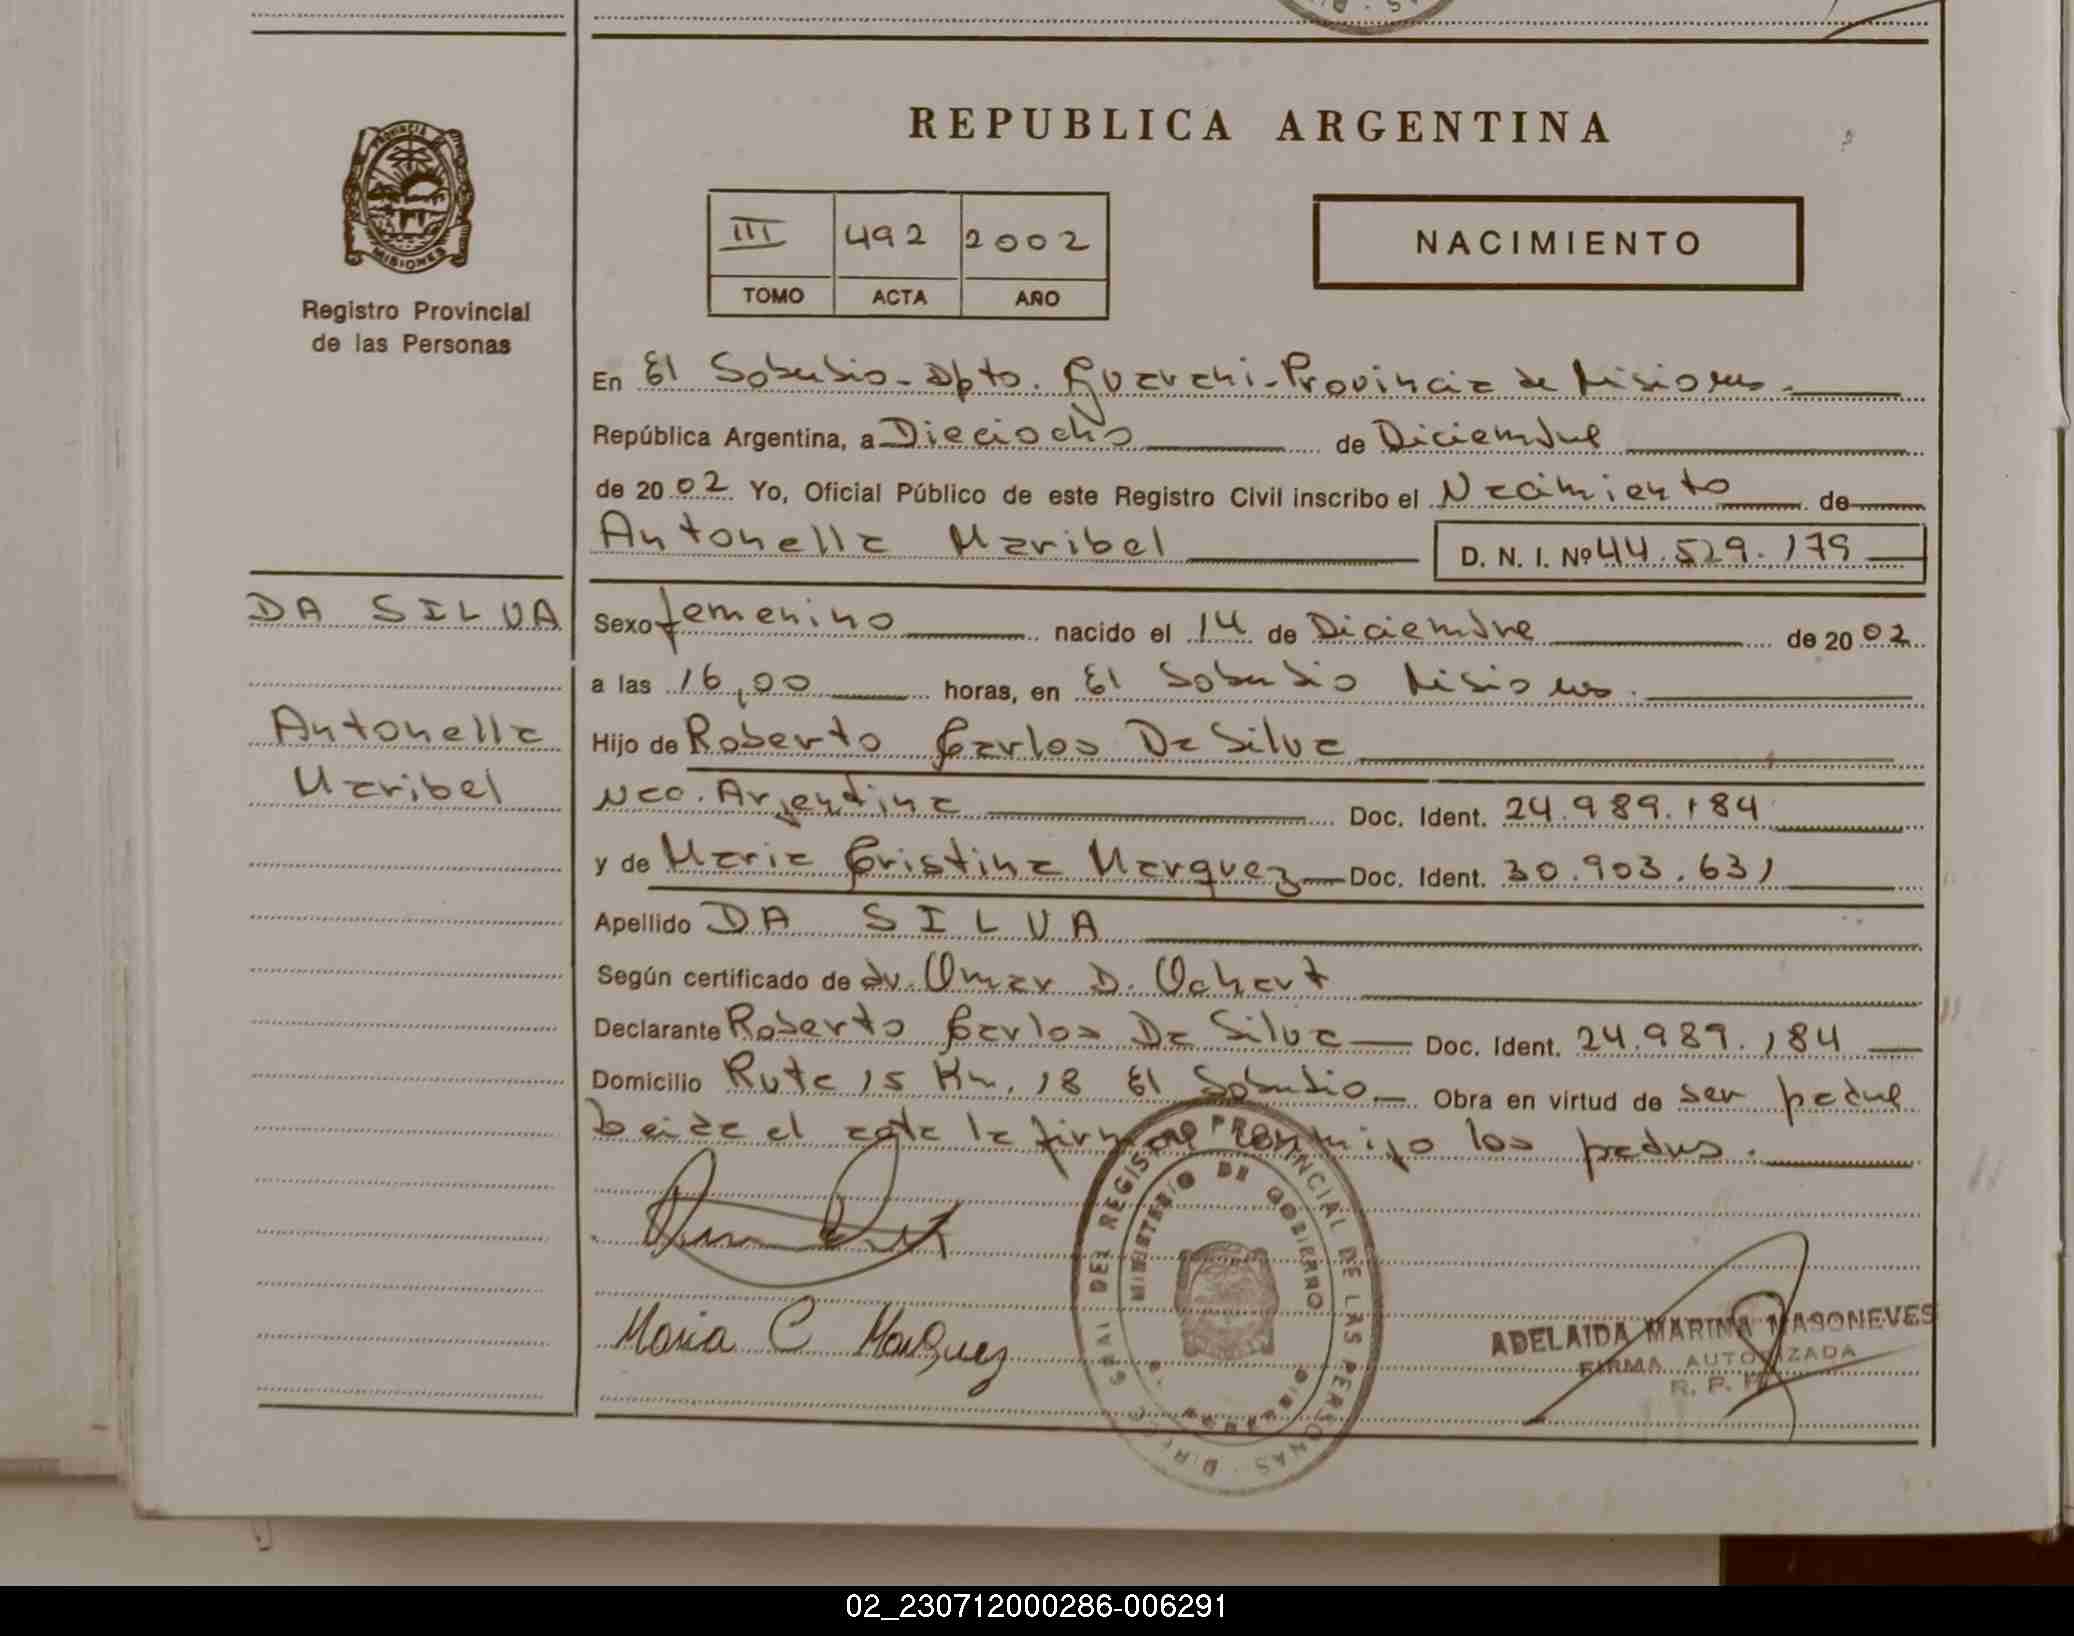 REPUBLICA ARGENTINA
PROVINCIA DE
MISIONES
Registro Provincial
de las Personas
III 492 2002
TOMO ACTA AÑO
NACIMIENTO
En El Soberbio - Dpto. Guarani - Provincia de Misiones.
República Argentina, a Dieciocho de Diciembre
de 20 02 Yo, Oficial Público de este Registro Civil inscribo el Nacimiento de
Antonella Maribel D. N. I. Nº 44.529.179
DA SILVA
Antonella
Maribel
Sexo femenino nacido el 14 de Diciembre de 20 02
a las 16,00 horas, en El Soberbio Misiones.
Hijo de Roberto Carlos Da Silva
Nac. Argentina Doc. Ident. 24.989.184
y de Maria Cristina Marquez Doc. Ident. 30.903.631
Apellido DA SILVA
Según certificado de dr. Omar D.
Declarante Roberto Carlos Da Silva Doc. Ident. 24.989.184
Domicilio Ruta 15 Km. 18 El Soberbio Obra en virtud de ser padre
Leida el acta la firman conmigo los padres.
REGISTRO PROVINCIAL DE LAS PERSONAS
MINISTERIO DE GOBIERNO
MISIONES
Maria C Marquez
ADELAIDA MARINA MASONEVES
FIRMA AUTORIZADA
R. P. P.
02_230712000286-006291